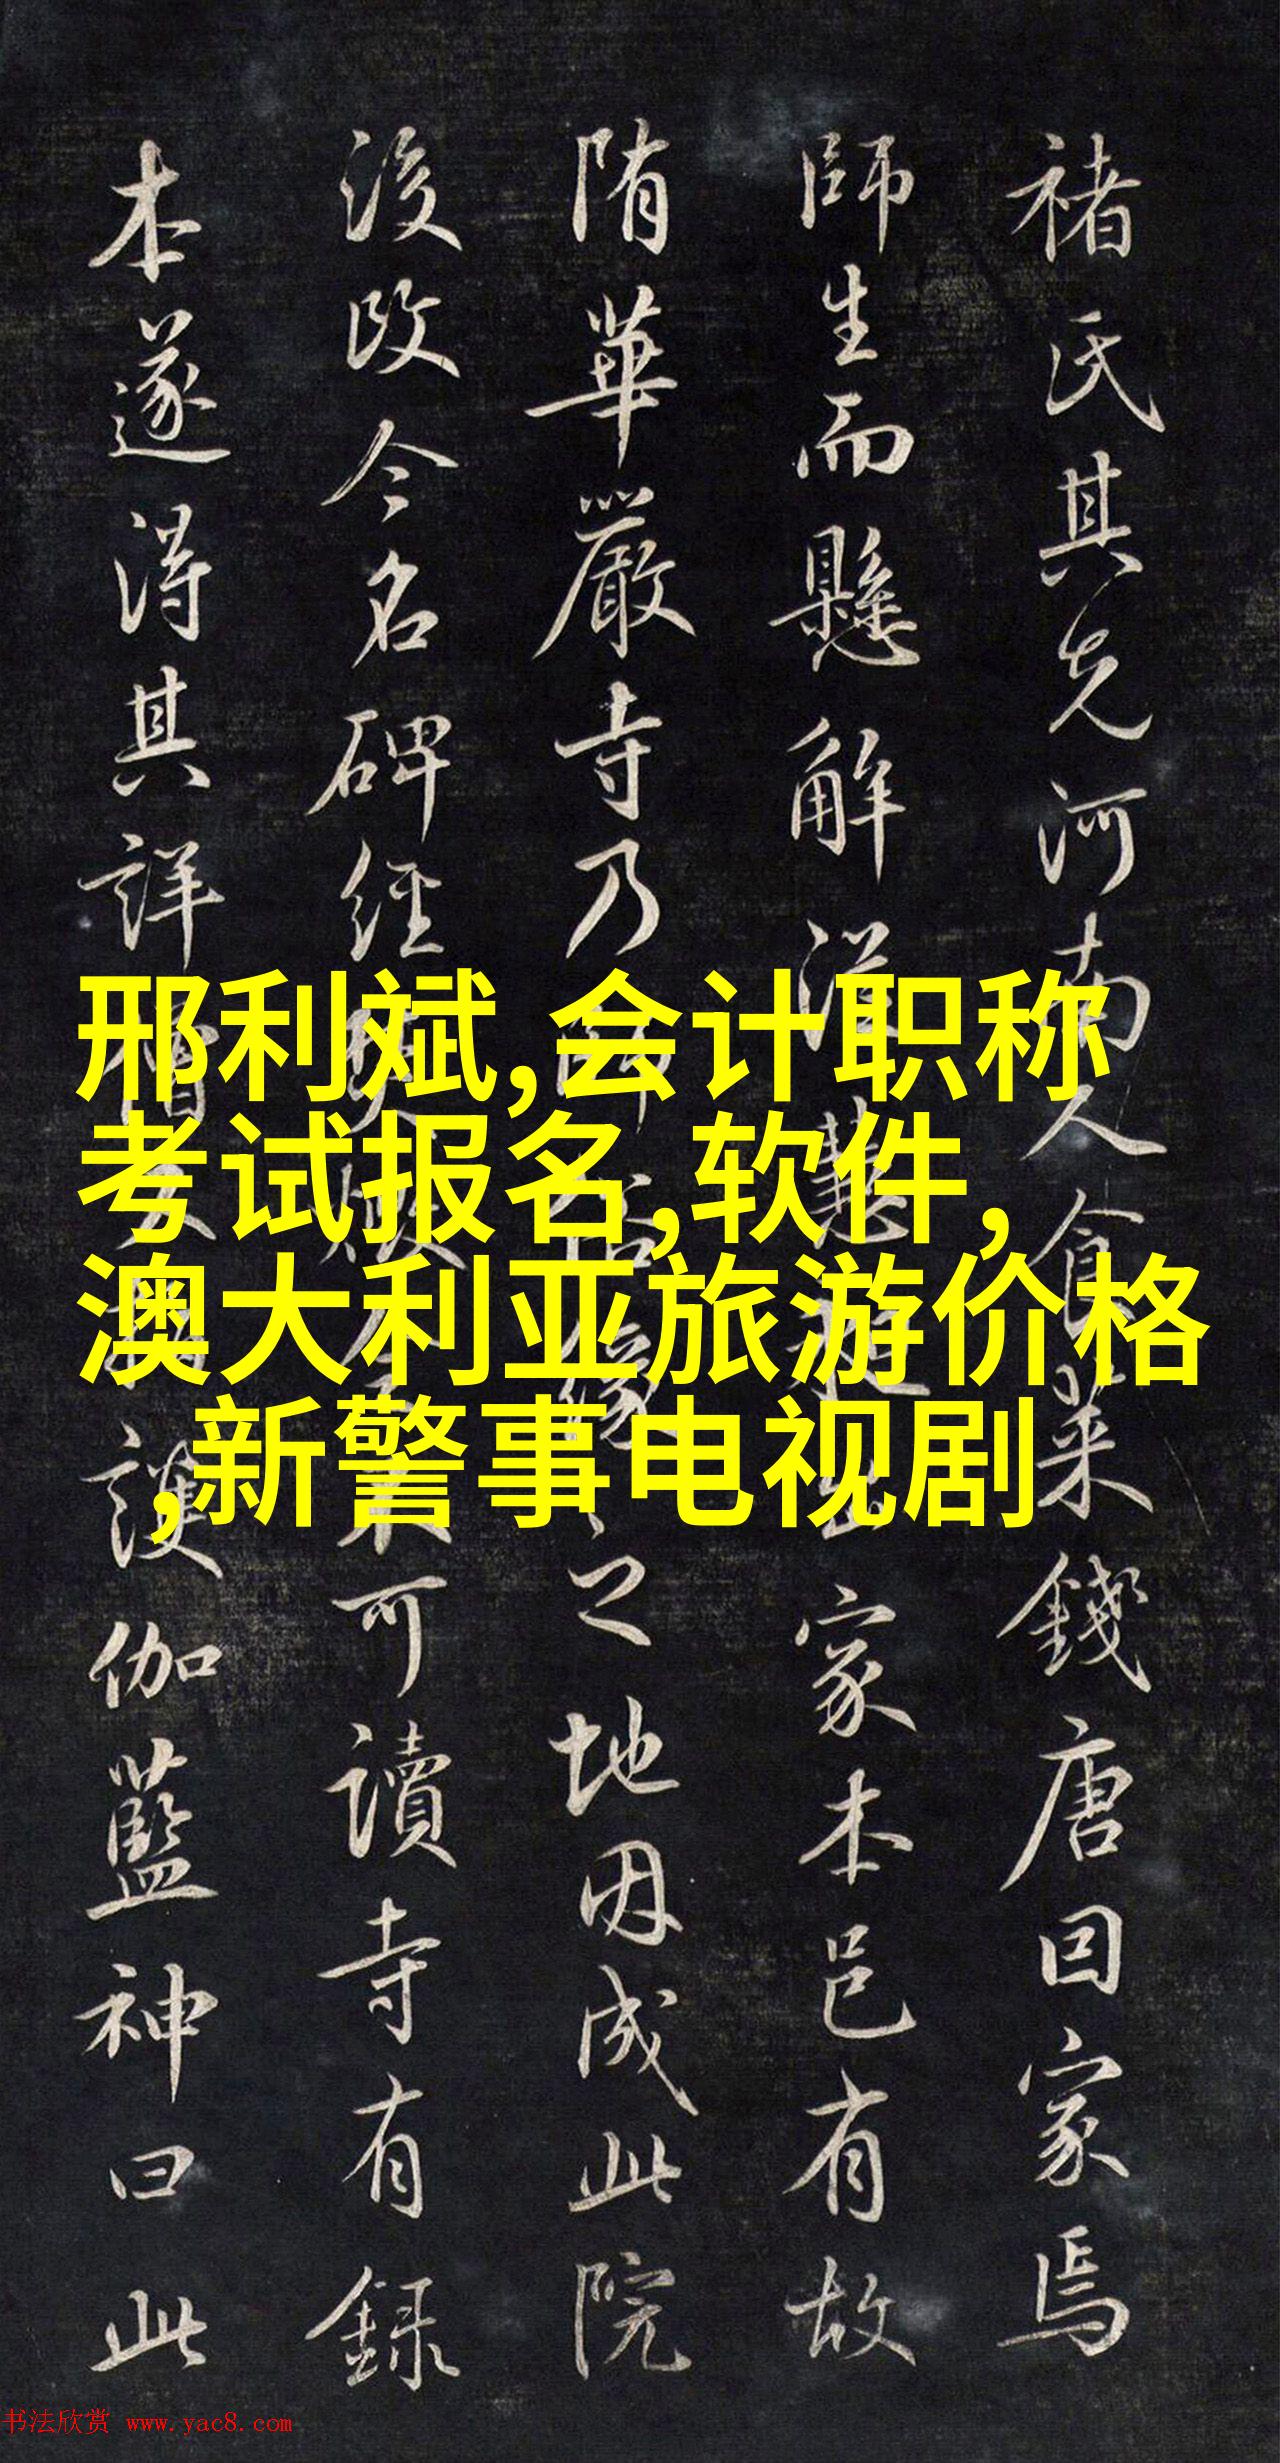 褚氏其先河南人食菜錢唐因家焉
師生而懸解家本邑有故
隋華嚴寺乃之地因成此院
後改今名碑經可讀寺有錄
本遂得其詳護伽藍神曰此
邢利斌,会计职称
考试报名,软件,
澳大利亚旅游价格
,新警事电视剧
书法欣赏 www.yac8.com